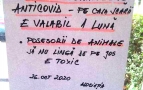 ANTICOVID - PE CAIA SCARĂ
E VALABIL 1 LUNĂ
• POSESORII DE ANIMALE
SĂ NU LINGĂ DE PE JOS
E TOXIC
26. OCT 2020